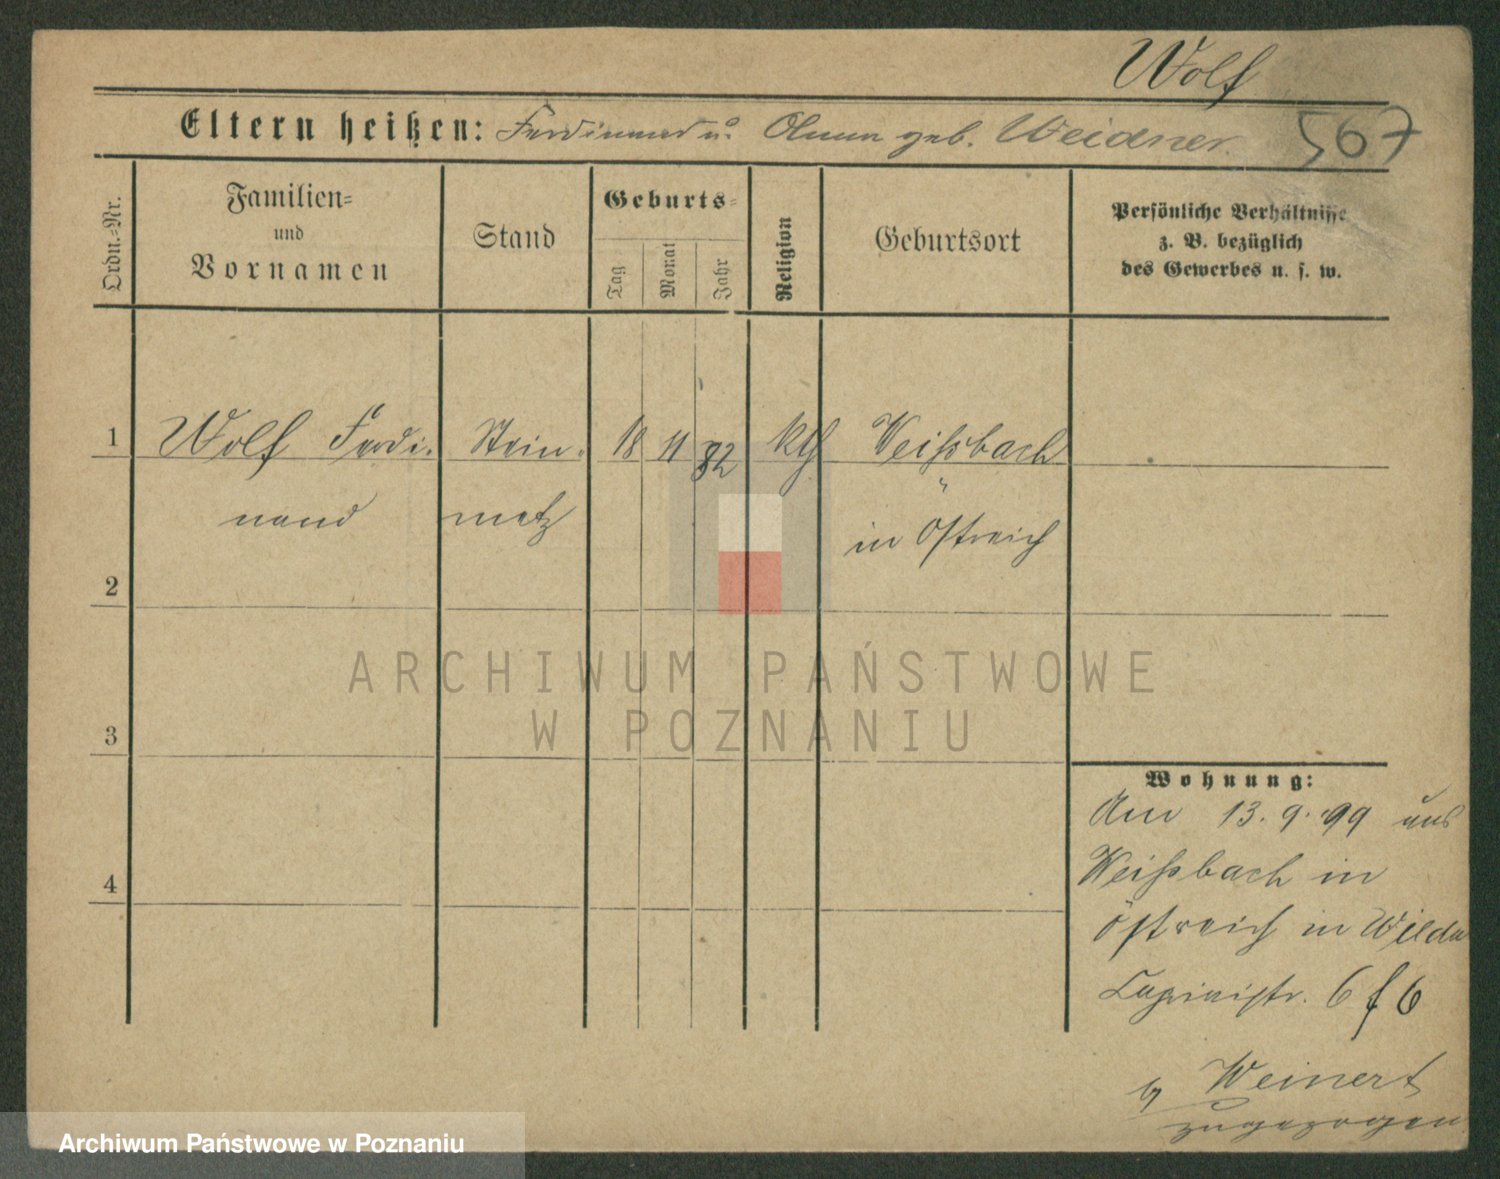 Wolf
Eltern heißen: Ferdinand u. Anna geb. Weidner. 567
Ordn.-Nr.
Familien-
und
Vornamen
Stand
Geburts-
Tag
Monat
Jahr
Religion
Geburtsort
Persönliche Verhältnisse
z. B. bezüglich
des Gewerbes u. s. w.
1 Wolf Ferdi- Stein- 18 11 82 kth Weißbach
nand metz in Östreich
2
3
4
Wohnung:
Am 13. 9. 99 aus
Weißbach in
Östreich in Wilda
6 f 6
Weinert
zugezogen
ARCHIWUM PAŃSTWOWE
W POZNANIU
Archiwum Państwowe w Poznaniu